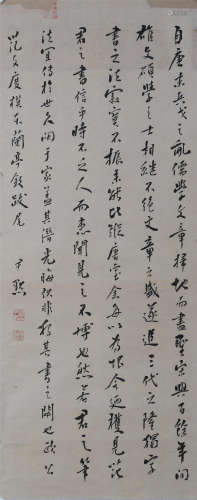 自唐末兵戈之亂儒學文章掃地而盡聖宋興百餘年間
雄文碩學之士相繼不絕文章之盛遂追三代之隆獨字
書之法寂寞不振未能比蹤唐室余每以為恨今乃獲見范
君之書信乎時不乏人而患聞見之不博也然若君之筆
法宜傳於世于家蓋其潛光晦非其書之也歐公
范文度模本蘭亭敘跋尾 尹默